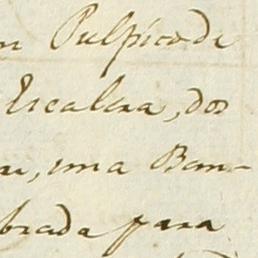 Pulpico de
Escalera, dos
una Ban-
brada para